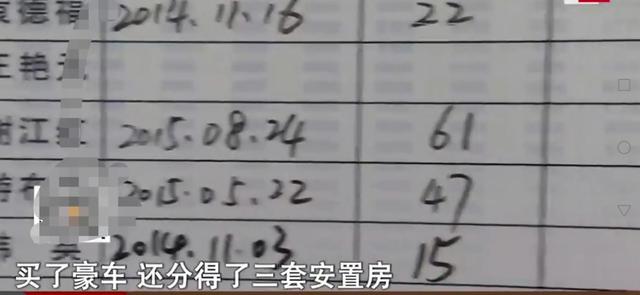 德福 2014.11.16 22
王艳
江 2015.08.24 61
2015.05.22 47
2014.11.03 15
买了豪车 还分得了三套安置房